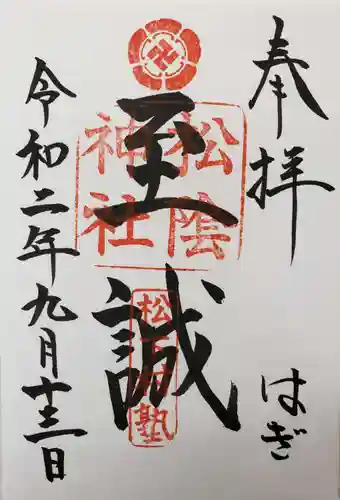 奉拝
はぎ
至誠
松陰神社
松下村塾
令和二年九月十三日